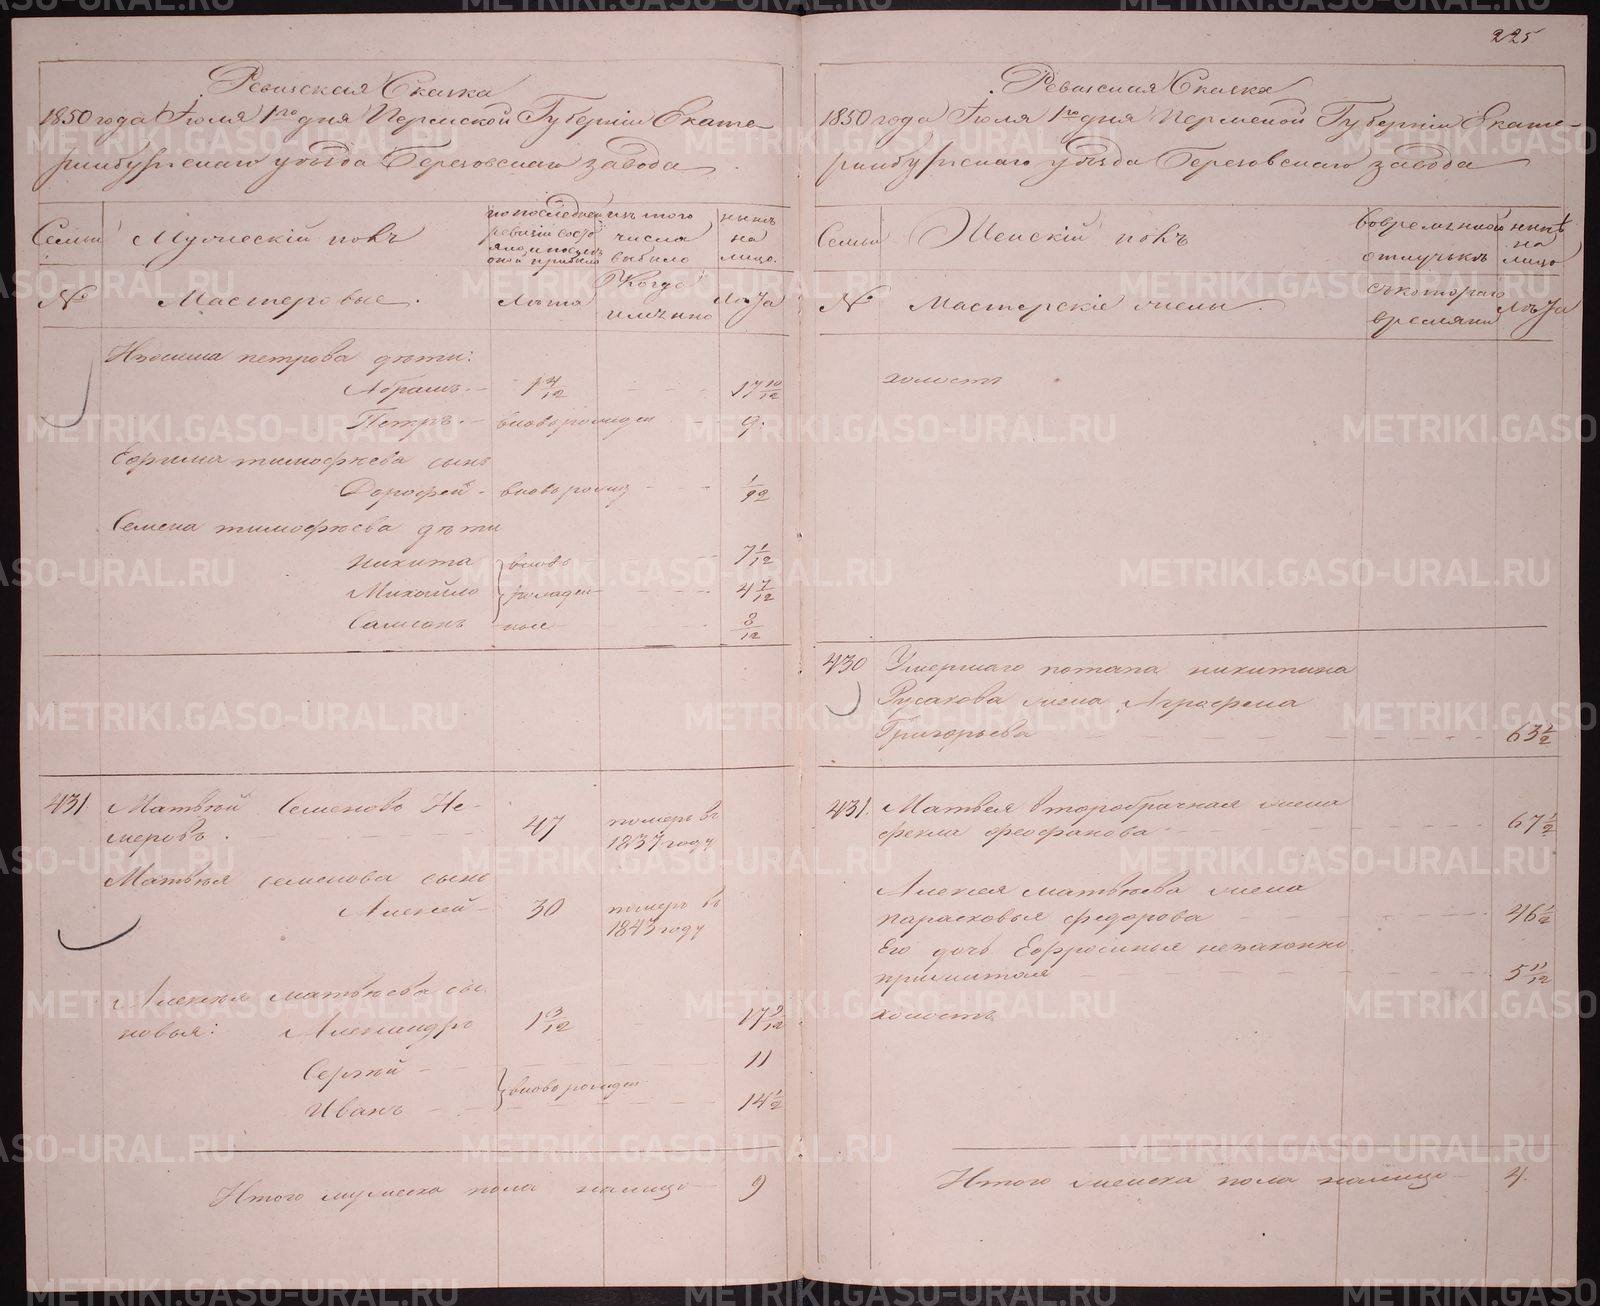 225
Ревизская Сказка
1850 года Іюля 1го дня Пермской Губерніи Екате-
ринбургскаго уѣзда Березовскаго завода
Семьи
Мужескій полъ
по последней
ревизіи состо
яло и после
оной прибыло
изъ того
числа
выбыло
нынѣ
на
лицо
№
Мастеровые.
Лѣта
Когда
именно
Лѣта
петрова дѣти:
Абрамъ 1 4/12 17 10/12
Петръ. вновь рожден 9.
Ефрема тимофеева сынъ
Дорофей вновь рожд
Семена тимофѣева дѣти
Никита вновь 7 1/12
Михайло рожден 4 7/12
Самсонъ ные 8/12
431 Матвѣй Семеновъ Не-
меровъ. 47 померъ въ
1837 году
Матвѣя семенова сынъ
Алексей 30 померъ въ
1843 году
Алексѣя матвѣева сы
новья: Александръ 1 3/12 17 9/12
Сергѣй 11
вновь рожден
Иванъ 14 1/2
Итого мужеска пола налицо 9
Ревизская Сказка
1850 года Іюля 1го дня Пермской Губерніи Екате-
ринбургскаго уѣзда Березовскаго завода
Семьи
Женскій полъ
во временной
отлучкѣ
нынѣ
на
лицо
№
Мастерскіе жены.
съ котораго
времяни
Лѣта
холостъ
430 Умершаго потапа никитина
Русакова жена Агрофена
Григорьева 63 1/2
431. Матвея второбрачная жена
фекла феофанова 67 1/2
Алексея матвѣева жена
парасковья федорова 46 1/2
Его дочь Ефросинья незаконно
прижитая 5 11/12
холостъ
Итого женска пола налицо 4.
METRIKI.GASO-URAL.RU